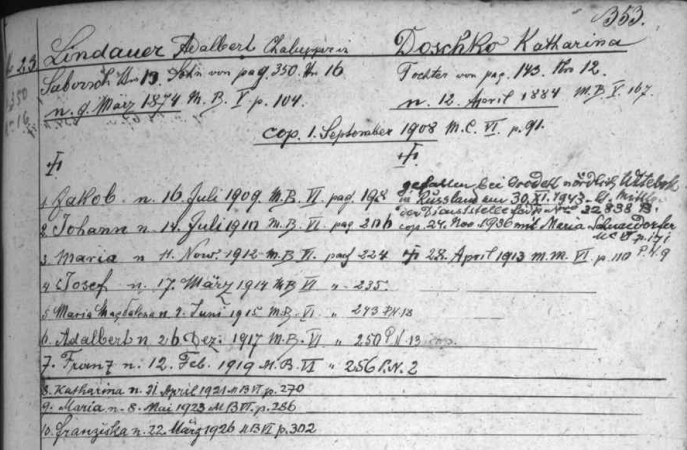 353.
23 Lindauer Adalbert Chalupper in Doschko Katharina
Saborsch Nr 13. Sohn von pag. 350. Nr 16. Tochter von pag. 143. Nr 12.
350
n. 9. März 1874 M. B. V p. 104. n. 12. April 1884 M. B V 167.
16
cop. 1. September 1908 M.C. VI. p. 91.
gefallen bei Gorodok nördlich Witebsk
1. Jakob n. 16. Juli 1909. M.B. VI pag 198 in Russland am 30.XI.1943. lt. Mittlg.
der Dienststelle 22838 B.
2. Johann n. 14. Juli 1910 M.B. VI pag 206 cop. 24. Nov. 1936 mit Maria Schneidorfer
M C VI p. 171
3. Maria n 11. Nov. 1912 M.B. VI. pag 224 28. April 1913 m.m. VI p. 110 P.N. 9
4. Josef n. 17. März 1914 M B VI " 235
5. Maria Magdalena n 2. Juni 1915 M.B. VI " 243 P.N. 13
6. Adalbert n. 26. Dez. 1917 M.B. VI " 250 P N 13 cop.
7. Franz n. 12. Feb. 1919 M.B. VI " 256 P.N. 2
8. Katharina n. 21 April 1921 M B VI p. 270
9. Maria n. 8. Mai 1923 M B VI p. 286
10. Franziska n. 22. März 1926 M B VI p. 302